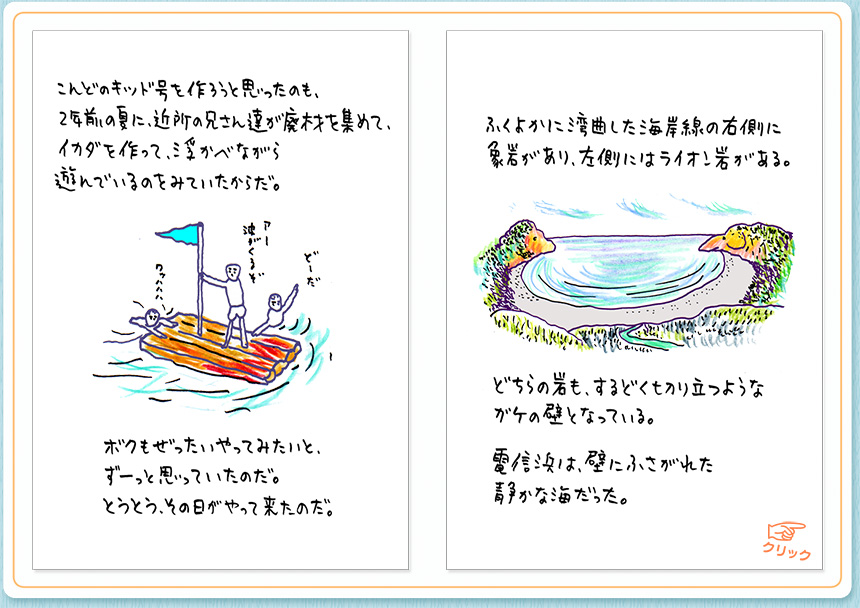 こんどのキッド号を作ろうと思ったのも、
2年前の夏に、近所の兄さん達が廃材を集めて、
イカダを作って、浮かべながら
遊んでいるのをみていたからだ。
アー
波がくるぞ
どーだ
ワァハハハハ
ボクもぜったいやってみたいと、
ずーっと思っていたのだ。
とうとう、その日がやって来たのだ。
ふくよかに湾曲した海岸線の右側に
象岩があり、左側にはライオン岩がある。
どちらの岩も、するどくもかり立つような
ガケの壁となっている。
電信浜は、壁にふさがれた
静かな海だった。
クリック